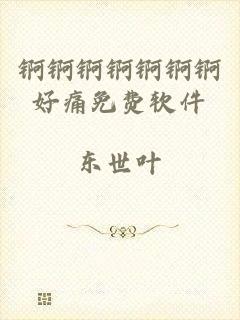 锕锕锕锕锕锕锕
好痛免费软件
东世叶